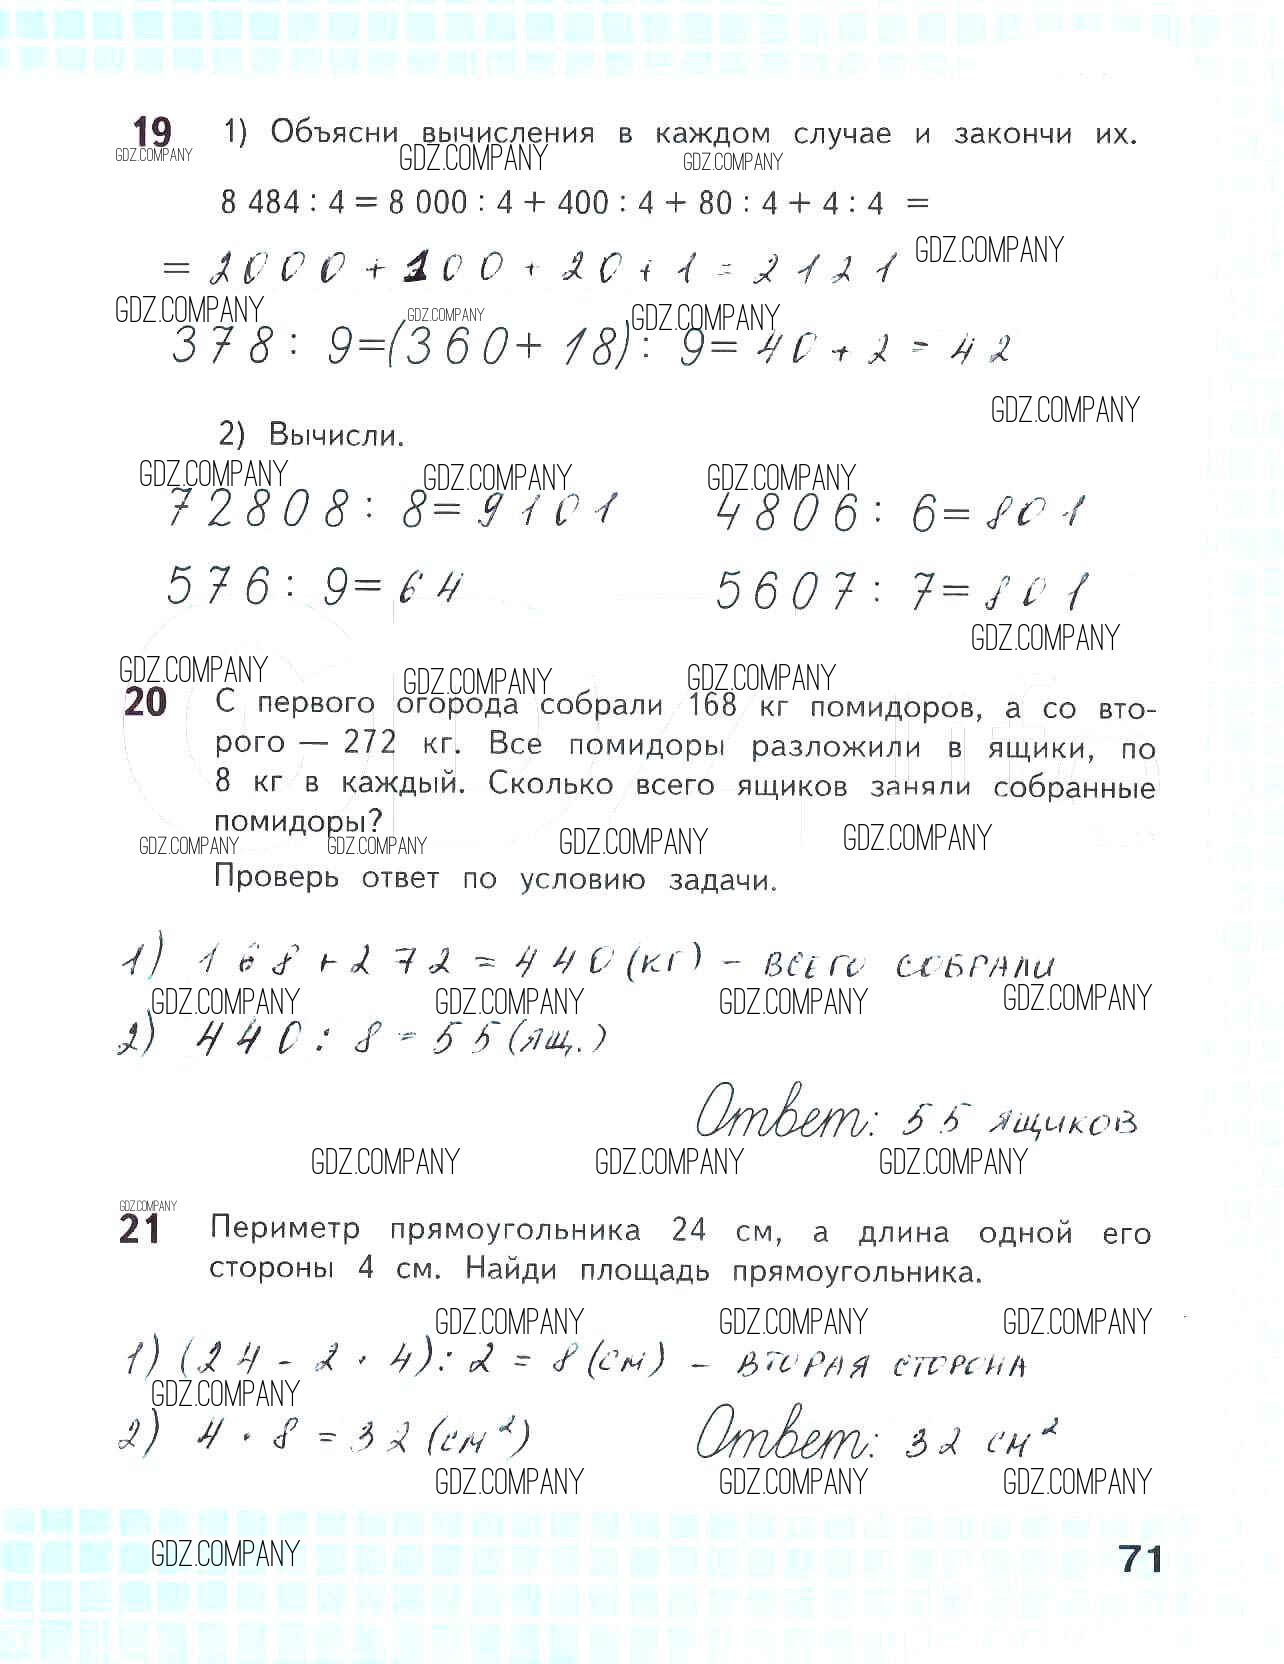 19 1) Объясни вычисления в каждом случае и закончи их.
GDZ.COMPANY GDZ.COMPANY GDZ.COMPANY
8 484 : 4 = 8 000 : 4 + 400 : 4 + 80 : 4 + 4 : 4 =
= 2000 + 100 + 20 + 1 = 2121
GDZ.COMPANY
GDZ.COMPANY GDZ.COMPANY GDZ.COMPANY
378 : 9=(360+ 18) : 9= 40 + 2 = 42
GDZ.COMPANY
2) Вычисли.
GDZ.COMPANY GDZ.COMPANY GDZ.COMPANY
72808 : 8= 9101 4806 : 6= 801
576 : 9= 64 5607 : 7= 801
GDZ.COMPANY
GDZ.COMPANY GDZ.COMPANY GDZ.COMPANY
20 С первого огорода собрали 168 кг помидоров, а со вто-
рого — 272 кг. Все помидоры разложили в ящики, по
8 кг в каждый. Сколько всего ящиков заняли собранные
помидоры?
GDZ.COMPANY GDZ.COMPANY GDZ.COMPANY GDZ.COMPANY
Проверь ответ по условию задачи.
1) 168 + 272 = 440 (кг) – всего собрали
GDZ.COMPANY GDZ.COMPANY GDZ.COMPANY GDZ.COMPANY
2) 440 : 8 = 55 (ящ.)
Ответ: 55 ящиков
GDZ.COMPANY GDZ.COMPANY GDZ.COMPANY
GDZ.COMPANY
21 Периметр прямоугольника 24 см, а длина одной его
стороны 4 см. Найди площадь прямоугольника.
GDZ.COMPANY GDZ.COMPANY GDZ.COMPANY
1) (24 – 2 · 4) : 2 = 8 (см) – вторая сторона
GDZ.COMPANY
2) 4 · 8 = 32 (см²) Ответ: 32 см²
GDZ.COMPANY GDZ.COMPANY GDZ.COMPANY
GDZ.COMPANY
71